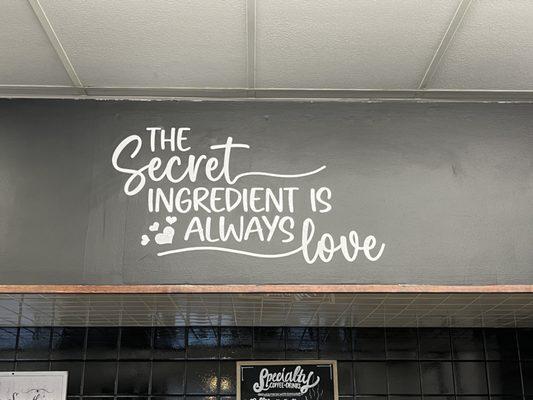 THE
Secret
INGREDIENT IS
ALWAYS love
Specialty
COFFEE DRINKS